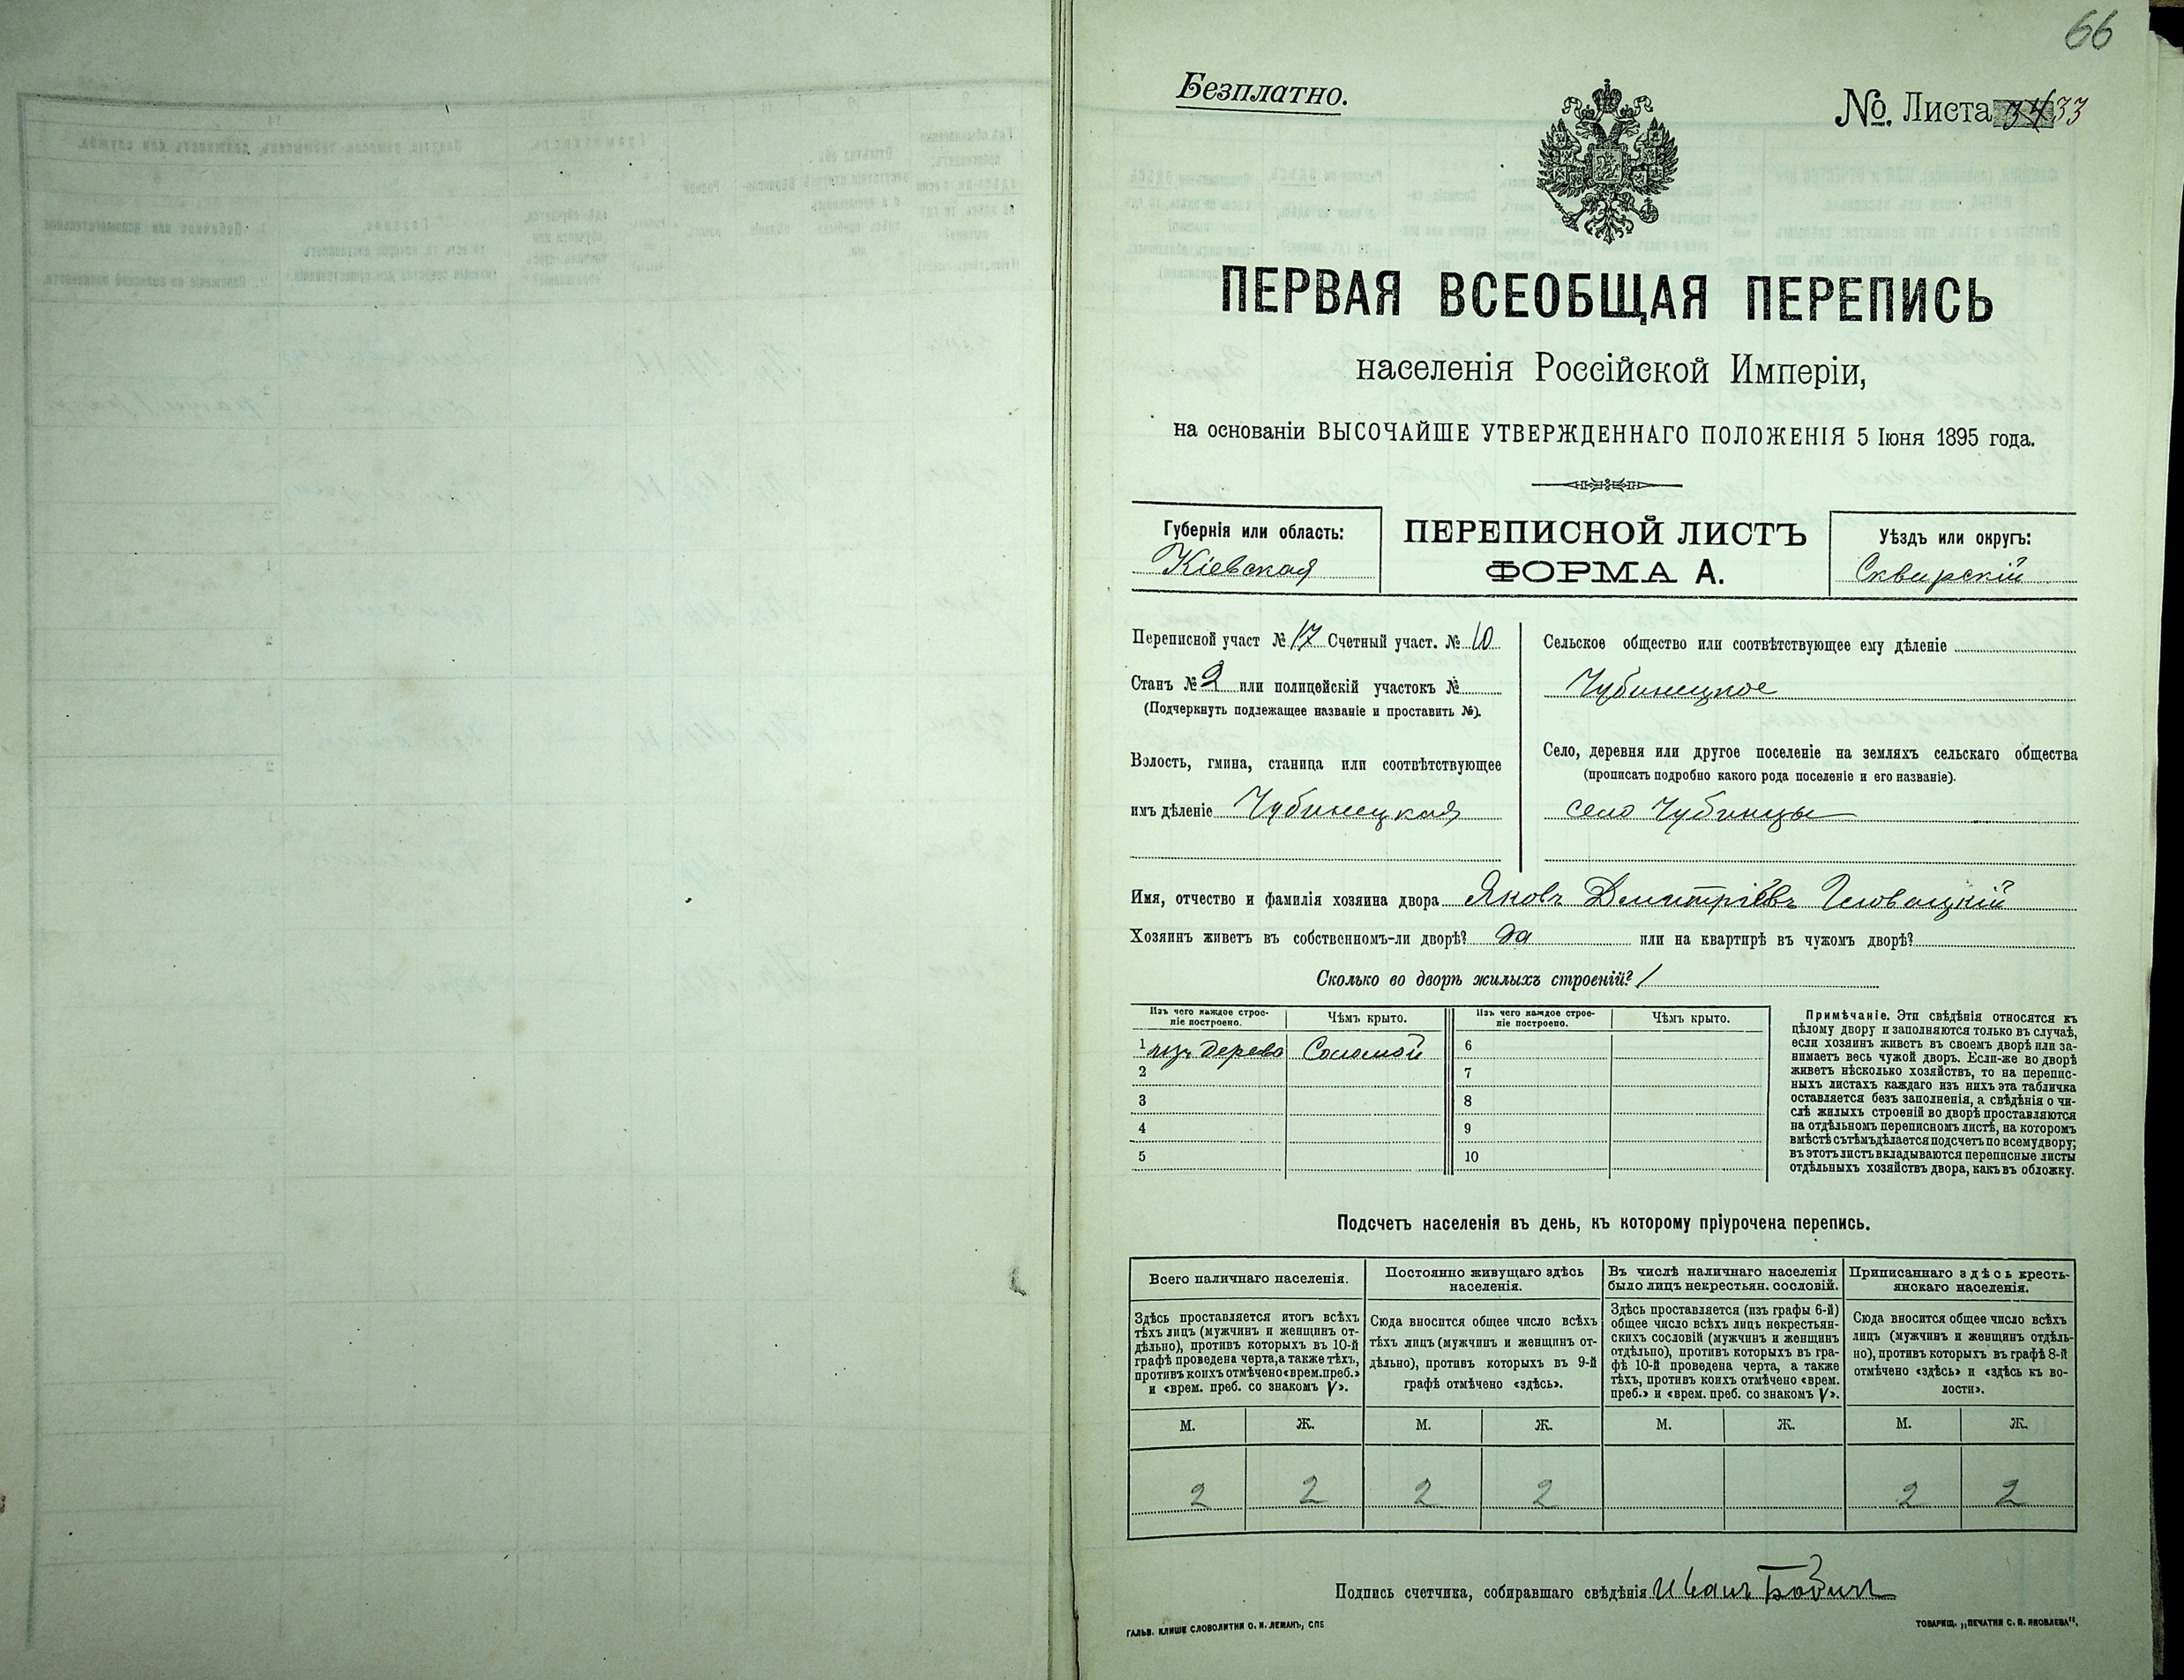 66
Безплатно.
№. Листа 34 33
ПЕРВАЯ ВСЕОБЩАЯ ПЕРЕПИСЬ
населенія Россійской Имперіи,
на основаніи ВЫСОЧАЙШЕ УТВЕРЖДЕННАГО ПОЛОЖЕНІЯ 5 Іюня 1895 года.
Губернія или область:
Кіевская
ПЕРЕПИСНОЙ ЛИСТЪ
ФОРМА А.
Уѣздъ или округъ:
Сквирскій
Переписной участ № 17 Счетный участ. № 10
Станъ № 2 или полицейскій участокъ №
(Подчеркнуть подлежащее названіе и проставить №).
Волость, гмина, станица или соотвѣтствующее
имъ дѣленіе Чубинецкая
Сельское общество или соотвѣтствующее ему дѣленіе
Чубинецкое
Село, деревня или другое поселеніе на земляхъ сельскаго общества
(прописать подробно какого рода поселеніе и его названіе).
село Чубинцы
Имя, отчество и фамилія хозяина двора Яковъ Дмитріевъ
Хозяинъ живетъ въ собственномъ-ли дворѣ? да или на квартирѣ въ чужомъ дворѣ?
Сколько во дворѣ жилыхъ строеній? 1
Изъ чего каждое строе-
ніе построено.
Чѣмъ крыто.
Изъ чего каждое строе-
ніе построено.
Чѣмъ крыто.
1 изъ дерева Соломой 6
2 7
3 8
4 9
5 10
Примѣчаніе. Эти свѣдѣнія относятся къ
цѣлому двору и заполняются только въ случаѣ,
если хозяинъ живетъ въ своемъ дворѣ или за-
нимаетъ весь чужой дворъ. Если-же во дворѣ
живетъ нѣсколько хозяйствъ, то на перепис-
ныхъ листахъ каждаго изъ нихъ эта табличка
оставляется безъ заполненія, а свѣдѣнія о чи-
слѣ жилыхъ строеній во дворѣ проставляются
на отдѣльномъ переписномъ листѣ, на которомъ
вмѣстѣ съ тѣмъ дѣлается подсчетъ по всему двору;
въ этотъ листъ вкладываются переписные листы
отдѣльныхъ хозяйствъ двора, какъ въ обложку.
Подсчетъ населенія въ день, къ которому пріурочена перепись.
Всего наличнаго населенія.
Здѣсь проставляется итогъ всѣхъ
тѣхъ лицъ (мужчинъ и женщинъ от-
дѣльно), противъ которыхъ въ 10-й
графѣ проведена черта, а также тѣхъ,
противъ коихъ отмѣчено «врем. преб.»
и «врем. преб. со знакомъ V».
Постоянно живущаго здѣсь
населенія.
Сюда вносится общее число всѣхъ
тѣхъ лицъ (мужчинъ и женщинъ от-
дѣльно), противъ которыхъ въ 9-й
графѣ отмѣчено «здѣсь».
Въ числѣ наличнаго населенія
было лицъ некрестьян. сословій.
Здѣсь проставляется (изъ графы 6-й)
общее число всѣхъ лицъ некрестьян-
скихъ сословій (мужчинъ и женщинъ
отдѣльно), противъ которыхъ въ гра-
фѣ 10-й проведена черта, а также
тѣхъ, противъ коихъ отмѣчено «врем.
преб.» и «врем. преб. со знакомъ V».
Приписаннаго здѣсь кресть-
янскаго населенія.
Сюда вносится общее число всѣхъ
лицъ (мужчинъ и женщинъ отдѣль-
но), противъ которыхъ въ графѣ 8-й
отмѣчено «здѣсь» и «здѣсь къ во-
лости».
М. Ж. М. Ж. М. Ж. М. Ж.
2 2 2 2 2 2
Подпись счетчика, собиравшаго свѣдѣнія Иванъ
ГАЛЬВ. КЛИШЕ СЛОВОЛИТНИ О. И. ЛЕМАНЪ, СПБ
ТОВАРИЩ. „ПЕЧАТНЯ С. П. ЯКОВЛЕВА“,